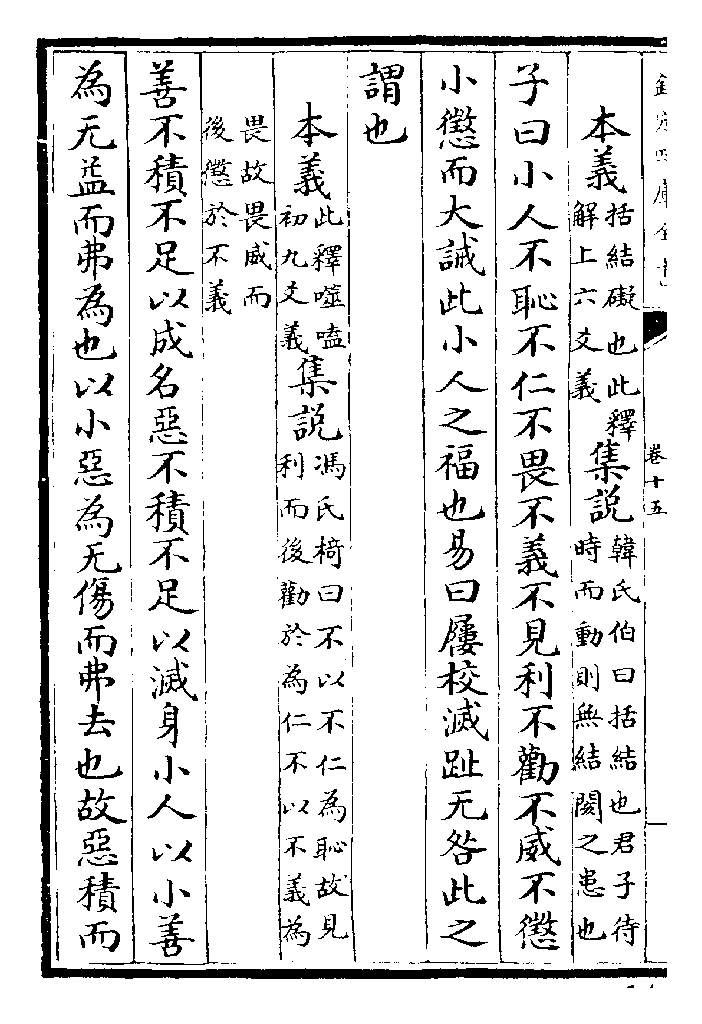 欽定四庫全書
卷十五
本義括結礙也此釋
解上六爻義集說韓氏伯曰括結也君子待
時而動則無結閡之患也
子曰小人不恥不仁不畏不義不見利不勸不威不懲
小懲而大誡此小人之福也易曰屨校滅趾无咎此之
謂也
本義此釋噬嗑
初九爻義集說馮氏椅曰不以不仁為恥故見
利而後勸於為仁不以不義為
畏故畏威而
後懲於不義
善不積不足以成名惡不積不足以滅身小人以小善
為无益而弗為也以小惡為无傷而弗去也故惡積而